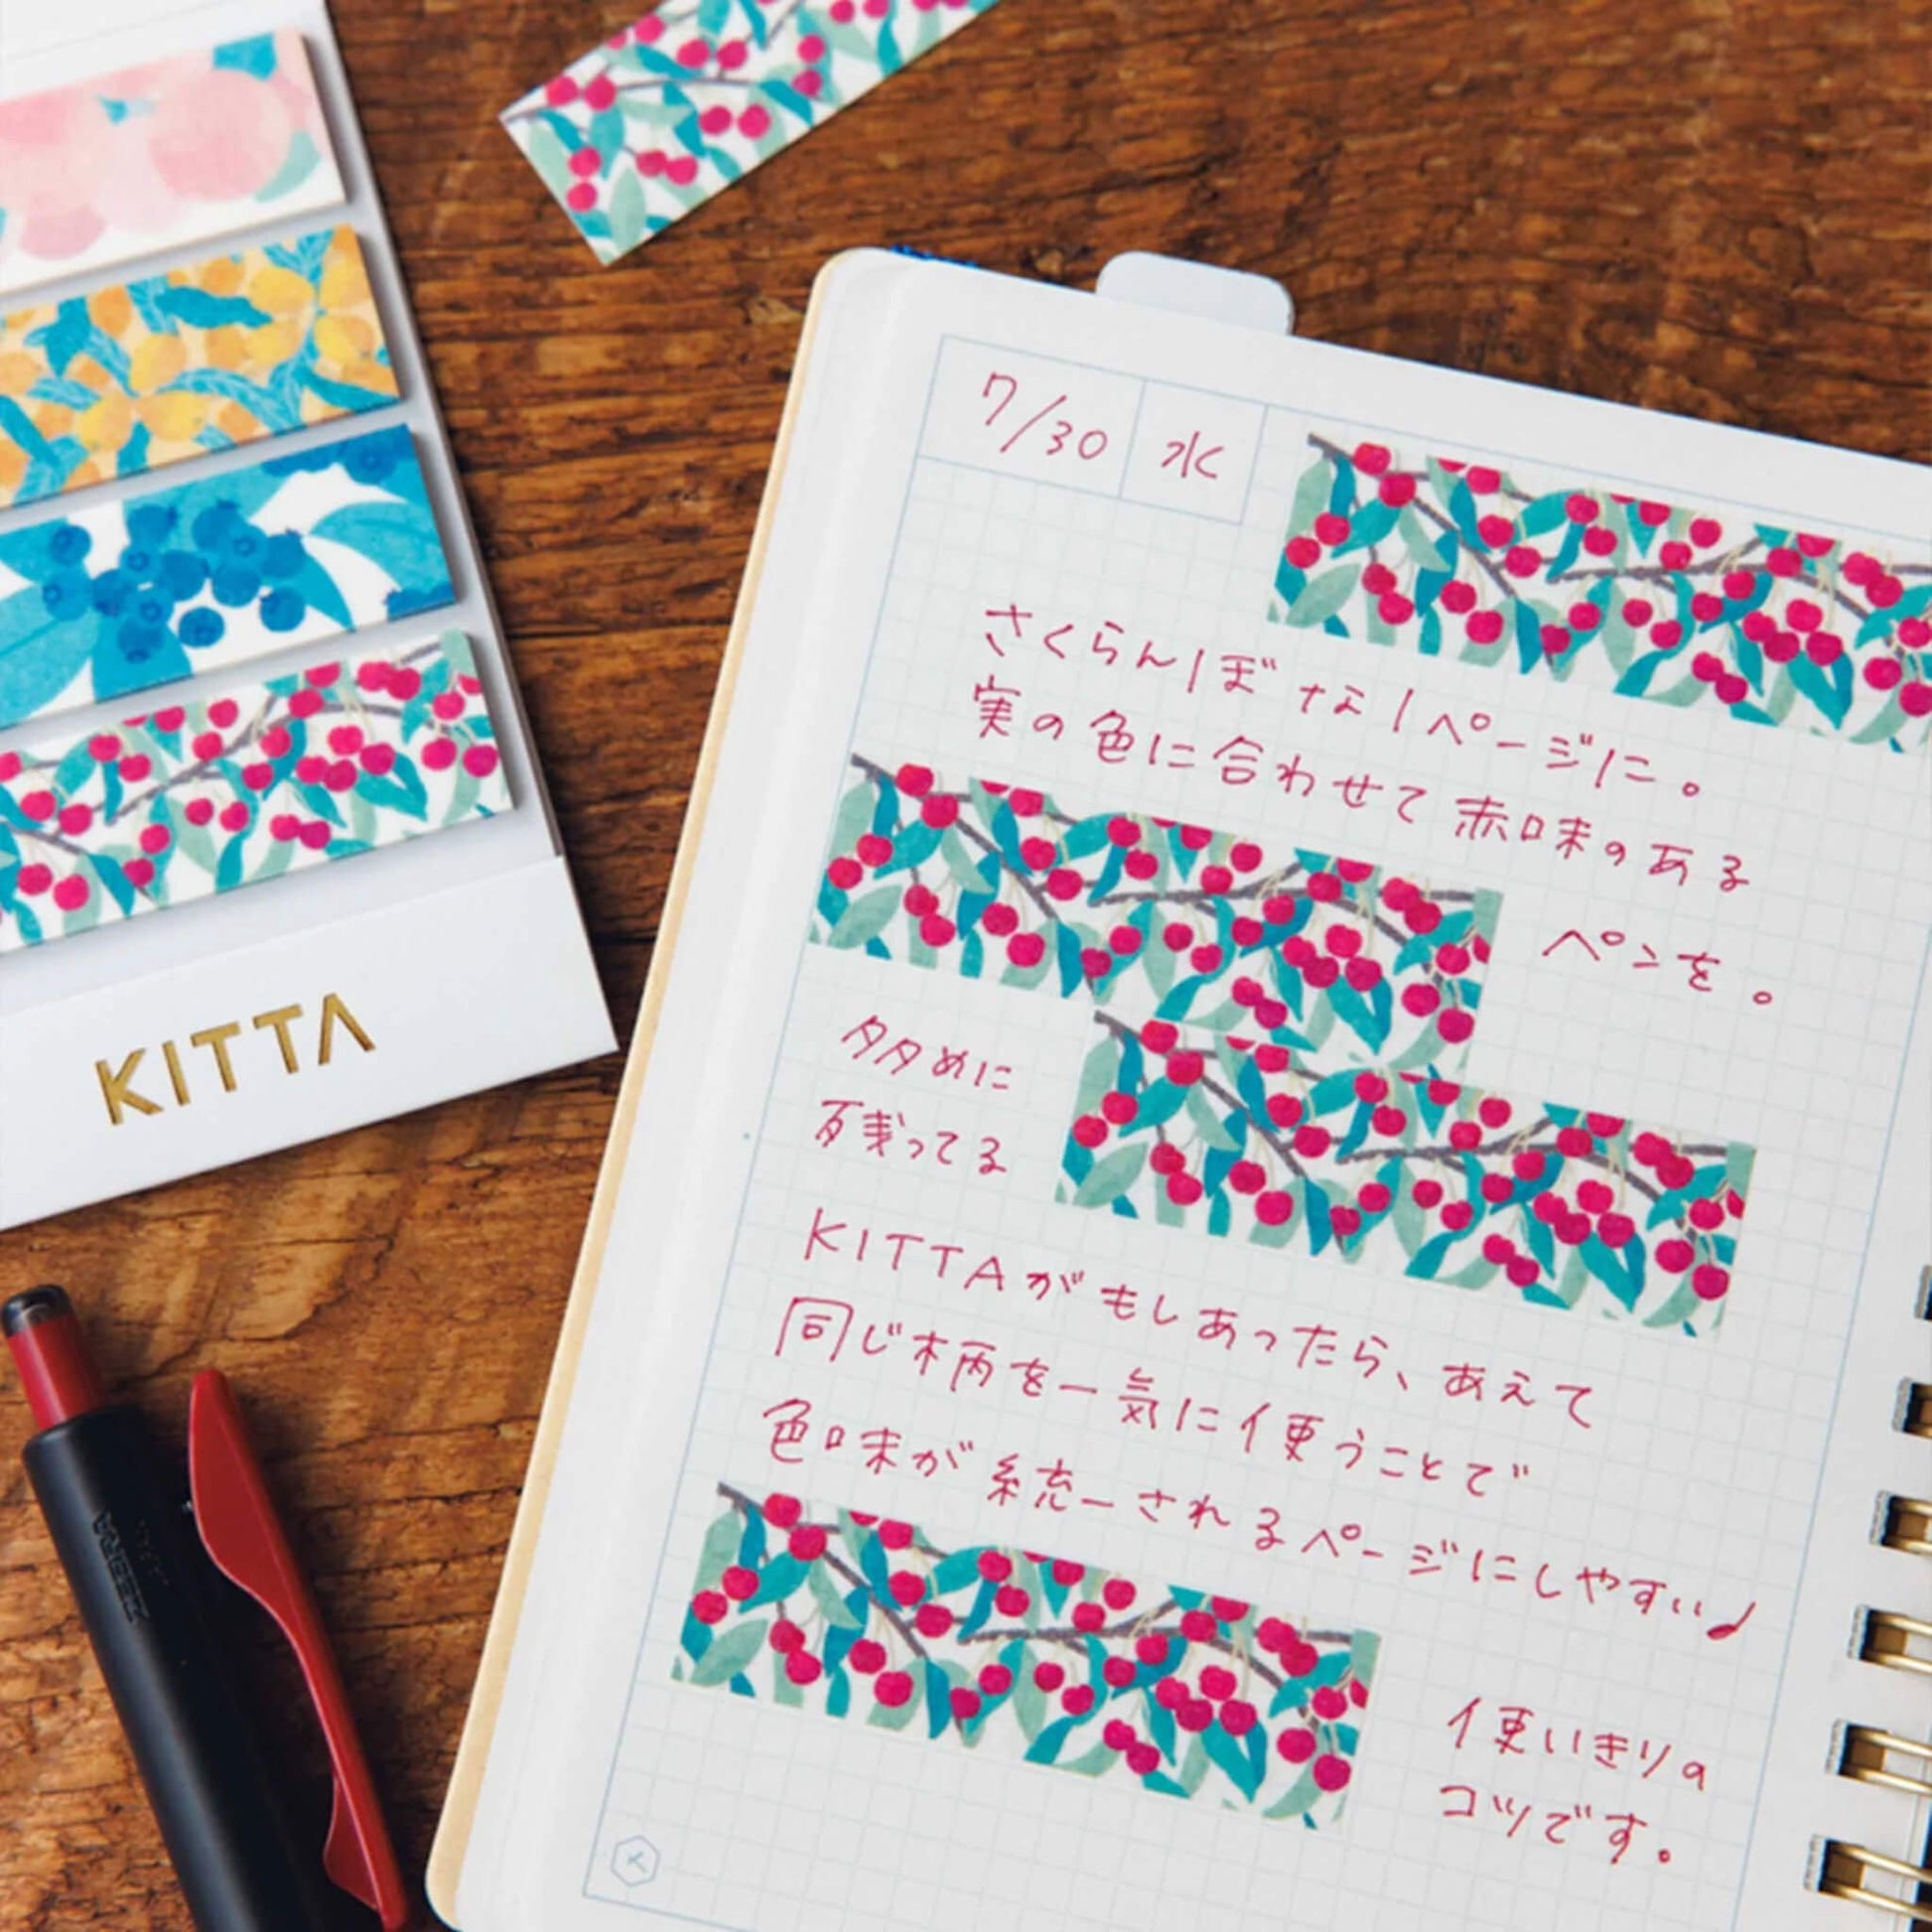 KITTA
7/30 水
さくらんぼな1ページに。
実の色に合わせて赤味のある
ペンを。
多めに
残ってる
KITTAがもしあったら、あえて
同じ柄を一気に使うことで
色味が統一されるページにしやすい♪
使いきりの
コツです。